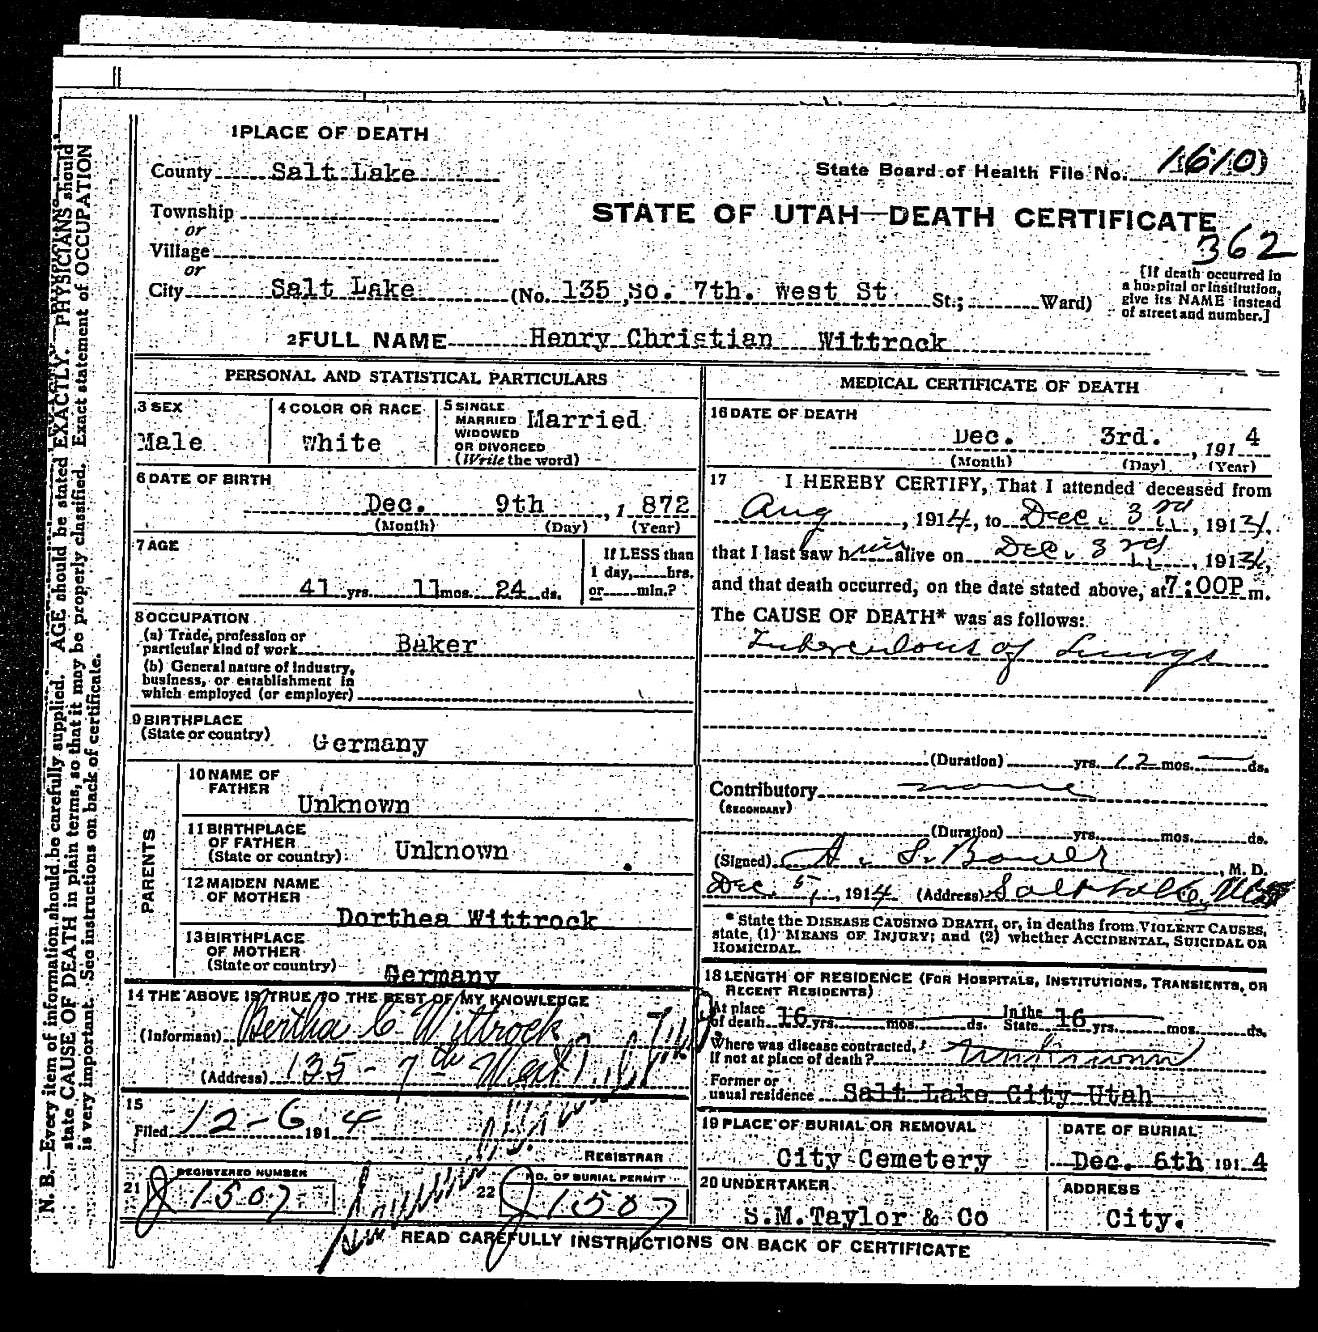 1 PLACE OF DEATH
County Salt Lake
State Board of Health File No. 1610
Township
or
STATE OF UTAH—DEATH CERTIFICATE
362
Village
or
City Salt Lake (No. 135 So. 7th. West St St.; Ward)
[If death occurred in
a hospital or institution,
give its NAME instead
of street and number.]
2 FULL NAME Henry Christian Wittrock
PERSONAL AND STATISTICAL PARTICULARS
3 SEX
Male
4 COLOR OR RACE
White
5 SINGLE
MARRIED
WIDOWED
OR DIVORCED
(Write the word)
Married
6 DATE OF BIRTH
Dec. 9th, 1 872
(Month) (Day) (Year)
7 AGE
41 yrs. 11 mos. 24 ds.
If LESS than
1 day, hrs.
or min.?
8 OCCUPATION
(a) Trade, profession or
particular kind of work Baker
(b) General nature of industry,
business, or establishment in
which employed (or employer)
9 BIRTHPLACE
(State or country) Germany
PARENTS
10 NAME OF
FATHER
Unknown
11 BIRTHPLACE
OF FATHER
(State or country) Unknown
12 MAIDEN NAME
OF MOTHER
Dorthea Wittrock
13 BIRTHPLACE
OF MOTHER
(State or country)
Germany
14 THE ABOVE IS TRUE TO THE BEST OF MY KNOWLEDGE
(Informant) Bertha C Wittrock
(Address) 135 - 7th West
15
Filed 12-6 191 4
REGISTRAR
21 REGISTERED NUMBER
1507
22 NO. OF BURIAL PERMIT
1507
MEDICAL CERTIFICATE OF DEATH
16 DATE OF DEATH
Dec. 3rd. , 191 4
(Month) (Day) (Year)
17 I HEREBY CERTIFY, That I attended deceased from
Aug , 1914, to Dec. 3rd , 1914.
that I last saw him alive on Dec. 3rd , 1914,
and that death occurred, on the date stated above, at 7:00P m.
The CAUSE OF DEATH* was as follows:
Tuberculous of Lungs
(Duration) yrs. 12 mos. — ds.
Contributory none
(SECONDARY)
(Duration) yrs. mos. ds.
(Signed) A. S. Bower , M. D.
Dec. 5, 1914 (Address) Salt Lake
*State the DISEASE CAUSING DEATH, or, in deaths from VIOLENT CAUSES,
state (1) MEANS OF INJURY; and (2) whether ACCIDENTAL, SUICIDAL OR
HOMICIDAL.
18 LENGTH OF RESIDENCE (FOR HOSPITALS, INSTITUTIONS, TRANSIENTS, OR
RECENT RESIDENTS)
At place
of death 16 yrs. mos. ds.
In the
State 16 yrs. mos. ds.
Where was disease contracted,
if not at place of death? Unknown
Former or
usual residence Salt Lake City Utah
19 PLACE OF BURIAL OR REMOVAL
City Cemetery
DATE OF BURIAL
Dec. 6th 191 4
20 UNDERTAKER
S.M.Taylor & Co
ADDRESS
City.
READ CAREFULLY INSTRUCTIONS ON BACK OF CERTIFICATE
N. B.—Every item of information should be carefully supplied. AGE should be stated EXACTLY. PHYSICIANS should
state CAUSE OF DEATH in plain terms, so that it may be properly classified. Exact statement of OCCUPATION
is very important. See instructions on back of certificate.